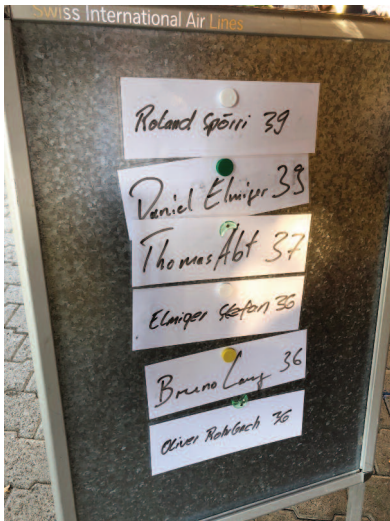 Swiss International Air Lines
Roland Spörri 39
Daniel Elmiger 39
Thomas Abt 37
Elmiger Stefan 36
Bruno Lang 36
Oliver Rohrbach 36